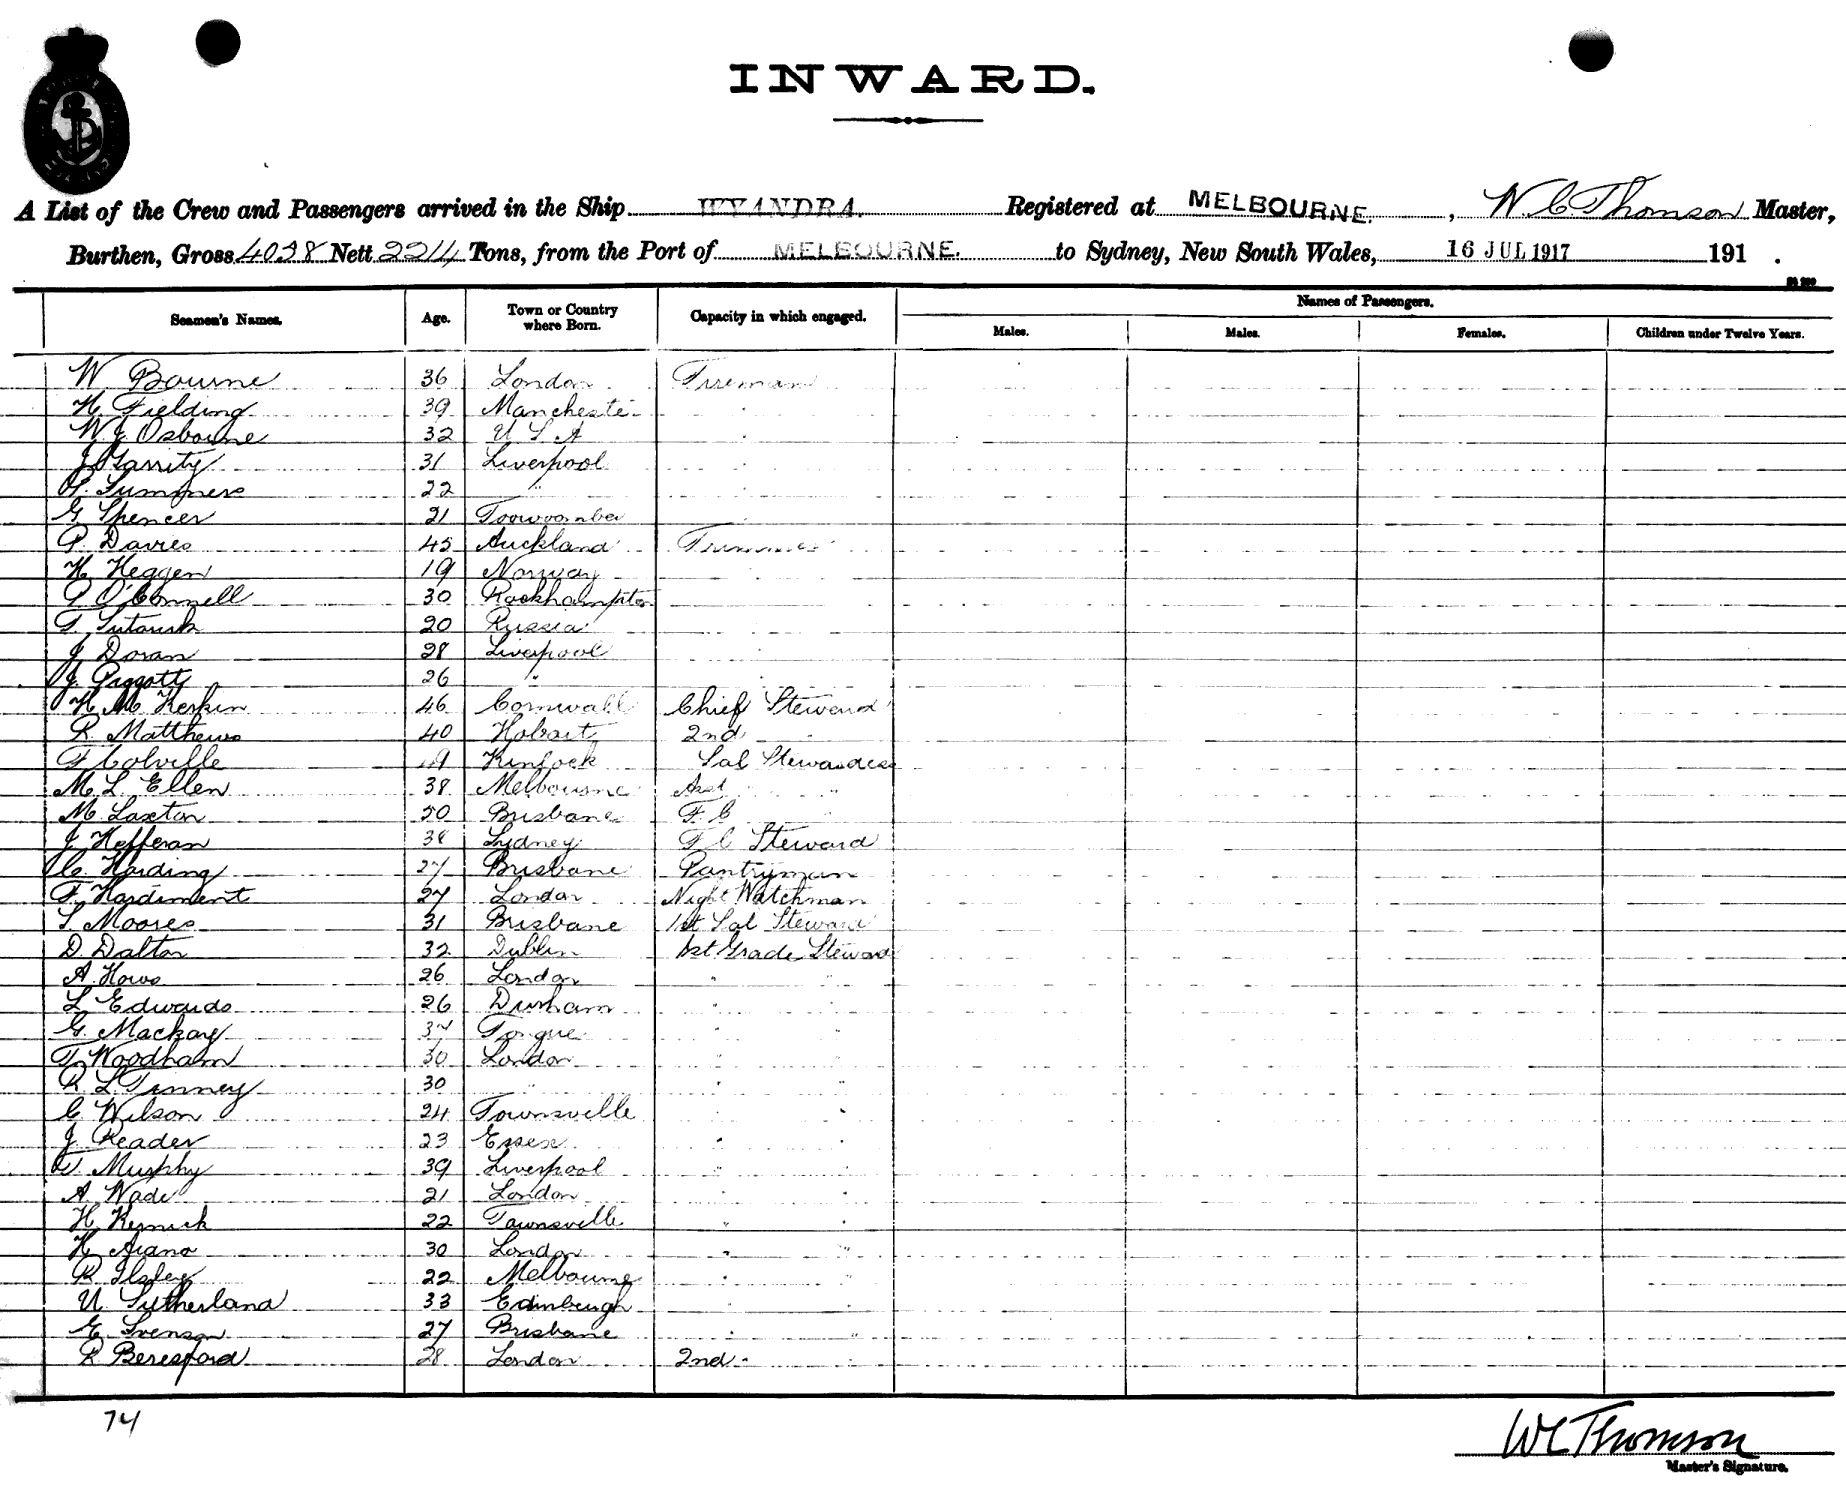 INWARD.
A List of the Crew and Passengers arrived in the Ship WYANDRA. Registered at MELBOURNE. , W. C Thomson Master,
Burthen, Gross 4058 Nett 2214 Tons, from the Port of MELBOURNE. to Sydney, New South Wales, 16 JUL 1917 191 .
Names of Passengers.
Seamen's Names. Age. Town or Country where Born. Capacity in which engaged. Males. Males. Females. Children under Twelve Years.
W Bourne 36 London Fireman
H. Fielding 39 Mancheste "
W J Osbourne 32 U S A "
J Garrity 31 Liverpool "
Summers 22 " "
G. Spencer 21 Toowoomba "
P. Davies 45 Auckland Trimmer
H Heggen 19 Norway
P O'Connell 30 Rockhampton
20 Russia
J Doran 28 Liverpool
J. Piggott 26 "
H Mc Kerkin 46 Cornwall Chief Steward
R. Matthews 40 Hobart 2nd "
F Colville Kinlock Sal Stewardess
M. L. Ellen 38 Melbourne Asst "
M. Laxton 50 Brisbane F. C "
J Hefferan 38 Sydney F C Steward
C. Harding 27 Brisbane Pantryman
F. Hardiment 27 London Night Watchman
S. Moores 31 Brisbane 1st Sal Steward
D. Dalton 32 Dublin 1st Grade Steward
A. Hows 26 London " "
L Edwards 26 Durham " "
G. Mackay 37 Tongue " "
T. Woodham 30 London " "
R. L. Tinney 30 " " "
C Wilson 24 Townsville " "
J. Reader 23 Essex " "
Murphy 39 Liverpool " "
A. Wade 21 London " "
H. Kernick 22 Townsville " "
H. Ariano 30 London " "
R Ilsley 22 Melbourne " "
U Sutherland 33 Edinburgh " "
E. Svenson 27 Brisbane " "
R Beresford 28 London 2nd "
74
W C Thomson
Master's Signature.